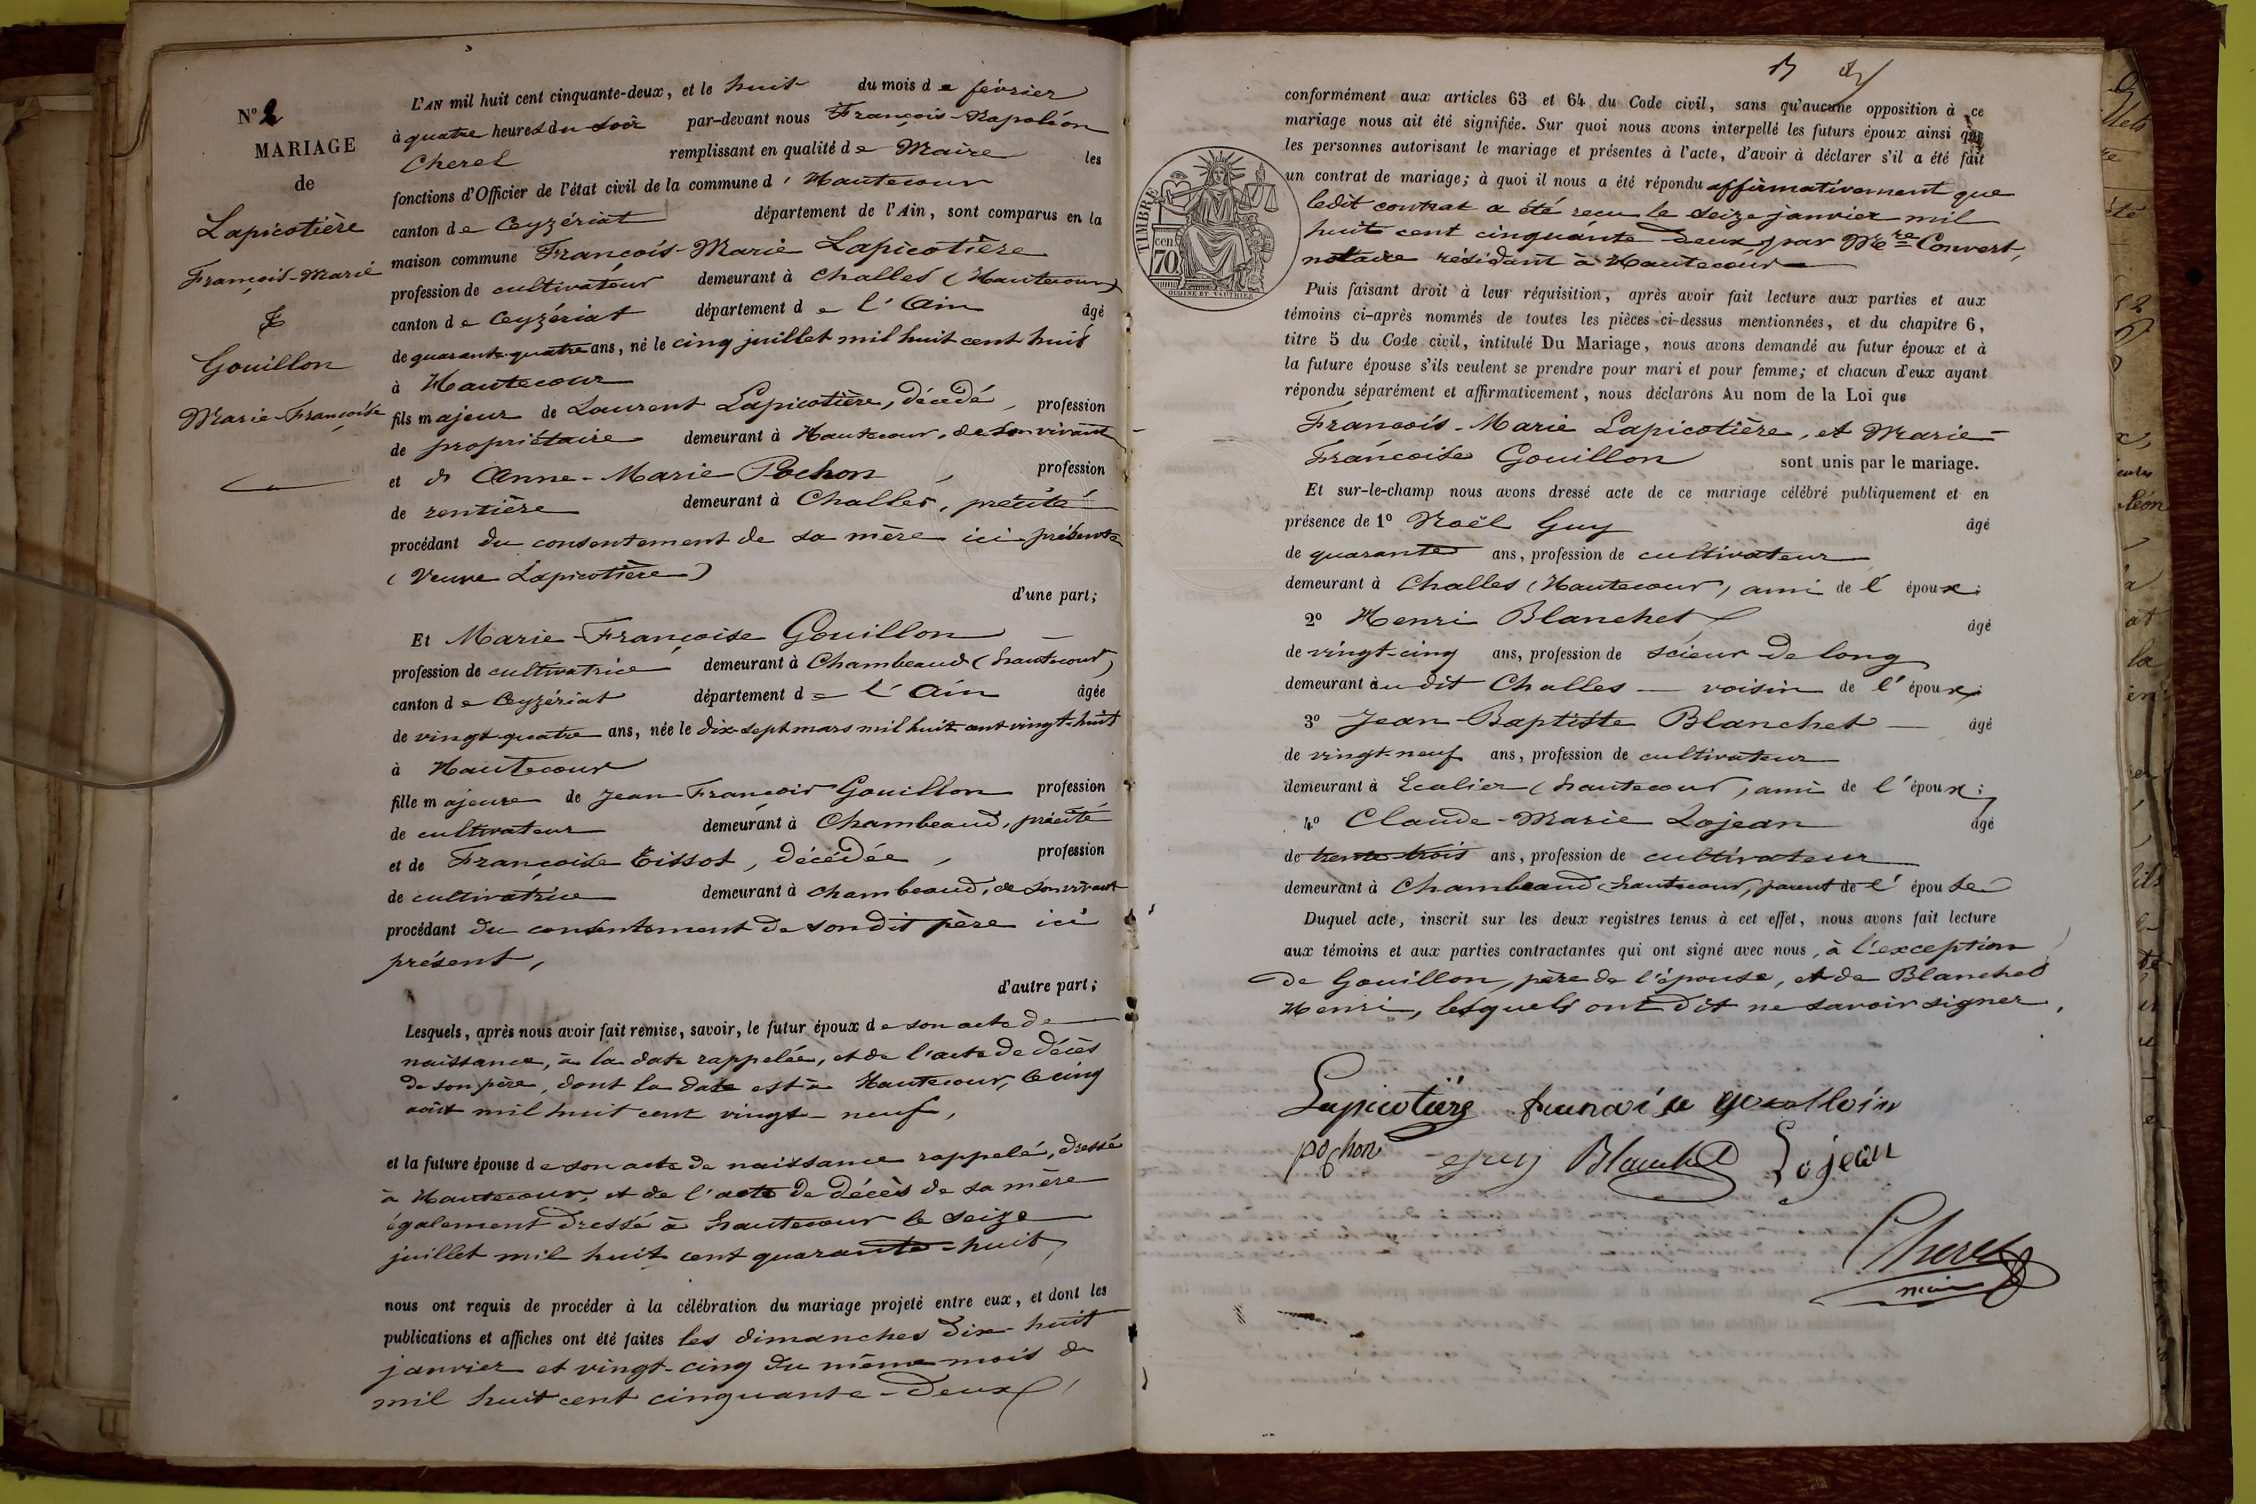 N° 2
MARIAGE
de
Lapicotière
François-Marie
&
Gouillon
Marie-Françoise
L'AN mil huit cent cinquante-deux, et le huit du mois de février
à quatre heures du soir par-devant nous François-Napoléon
Cherel remplissant en qualité de Maire les
fonctions d'Officier de l'état civil de la commune d'Hautecour
canton de Ceyzériat département de l'Ain, sont comparus en la
maison commune François-Marie Lapicotière
profession de cultivateur demeurant à Challes (Hautecour)
canton de Ceyzériat département de l'Ain âgé
de quarante-quatre ans, né le cinq juillet mil huit cent huit
à Hautecour
fils majeur de Laurent Lapicotière, décédé, profession
de propriétaire demeurant à Hautecour, de son vivant
et d'Anne-Marie Pochon, profession
de rentière demeurant à Challes, précité
procédant du consentement de sa mère ici présente
(Veuve Lapicotière)
d'une part;
Et Marie-Françoise Gouillon
profession de cultivatrice demeurant à Chambeaud (hautecour)
canton de Ceyzériat département de l'Ain âgée
de vingt-quatre ans, née le dix-sept mars mil huit cent vingt-huit
à Hautecour
fille majeure de Jean-François Gouillon profession
de cultivateur demeurant à Chambeaud, précité
et de Françoise Tissot, décédée, profession
de cultivatrice demeurant à chambeaud, de son vivant
procédant du consentement de son dit père ici
présent,
d'autre part;
Lesquels, après nous avoir fait remise, savoir, le futur époux de son acte de
naissance, à la date rappelée, et de l'acte de décès
de son père, dont la date est à Hautecour, le cinq
août mil huit cent vingt-neuf,
et la future épouse de son acte de naissance rappelé, dressé
à Hautecour, et de l'acte de décès de sa mère
également dressé à hautecour le seize
juillet mil huit cent quarante-huit,
nous ont requis de procéder à la célébration du mariage projeté entre eux, et dont les
publications et affiches ont été faites les dimanches dix-huit
janvier et vingt-cinq du même mois de
mil huit cent cinquante-deux,
conformément aux articles 63 et 64 du Code civil, sans qu'aucune opposition à ce
mariage nous ait été signifiée. Sur quoi nous avons interpellé les futurs époux ainsi que
les personnes autorisant le mariage et présentes à l'acte, d'avoir à déclarer s'il a été fait
un contrat de mariage; à quoi il nous a été répondu affirmativement que
ledit contrat a été reçu le seize janvier mil
huit cent cinquante-deux, par Me Convert,
notaire résidant à Hautecour
TIMBRE
cen 70
OUDINE ET VAUTHIER
Puis faisant droit à leur réquisition, après avoir fait lecture aux parties et aux
témoins ci-après nommés de toutes les pièces ci-dessus mentionnées, et du chapitre 6,
titre 5 du Code civil, intitulé Du Mariage, nous avons demandé au futur époux et à
la future épouse s'ils veulent se prendre pour mari et pour femme; et chacun d'eux ayant
répondu séparément et affirmativement, nous déclarons Au nom de la Loi que
François-Marie Lapicotière, et Marie-
Françoise Gouillon sont unis par le mariage.
Et sur-le-champ nous avons dressé acte de ce mariage célébré publiquement et en
présence de 1° Noël Guy âgé
de quarante ans, profession de cultivateur
demeurant à Challes (Hautecour), ami de l'époux;
2° Henri Blanchet âgé
de vingt-cinq ans, profession de scieur de long
demeurant audit Challes — voisin de l'époux;
3° Jean-Baptiste Blanchet — âgé
de vingt-neuf ans, profession de cultivateur
demeurant à (hautecour), ami de l'époux;
4° Claude-Marie Lojean âgé
de trente-trois ans, profession de cultivateur
demeurant à Chambeaud hautecour, parent de l'épouse
Duquel acte, inscrit sur les deux registres tenus à cet effet, nous avons fait lecture
aux témoins et aux parties contractantes qui ont signé avec nous, à l'exception
de Gouillon, père de l'épouse, et de Blanchet
Henri, lesquels ont dit ne savoir signer.
Lapicotière
pochon guy Blanchet Lojean
Cherel
maire